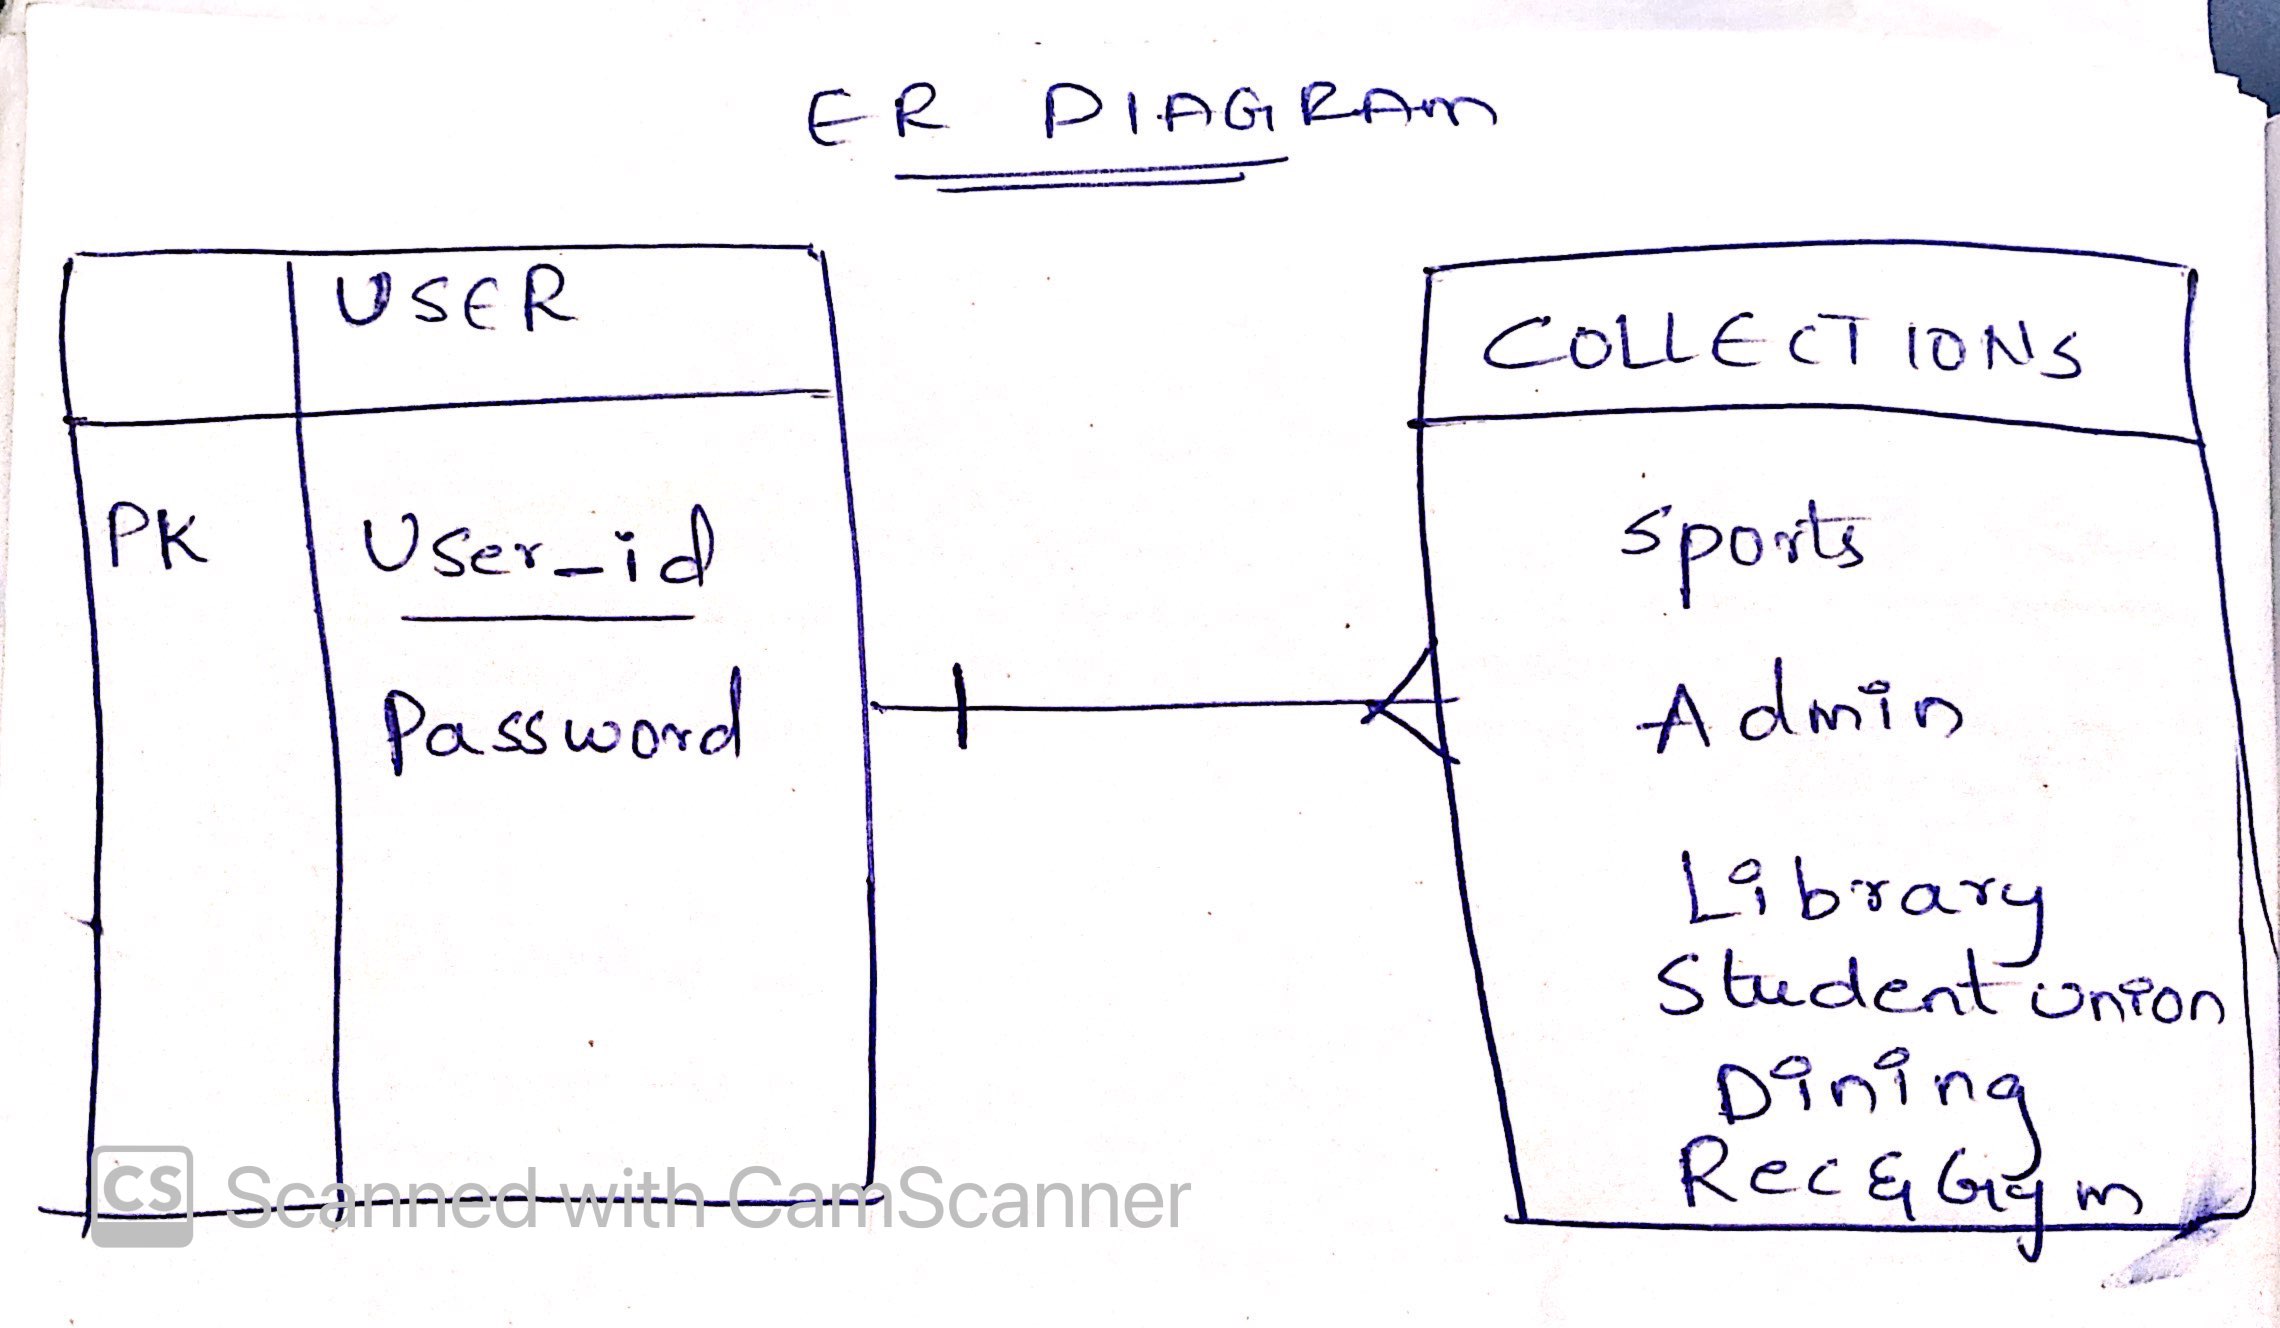 ER DIAGRAM
USER
PK User_id
Password
COLLECTIONS
Sports
Admin
Library
Student Union
Dining
Rec & Gym
CS Scanned with CamScanner